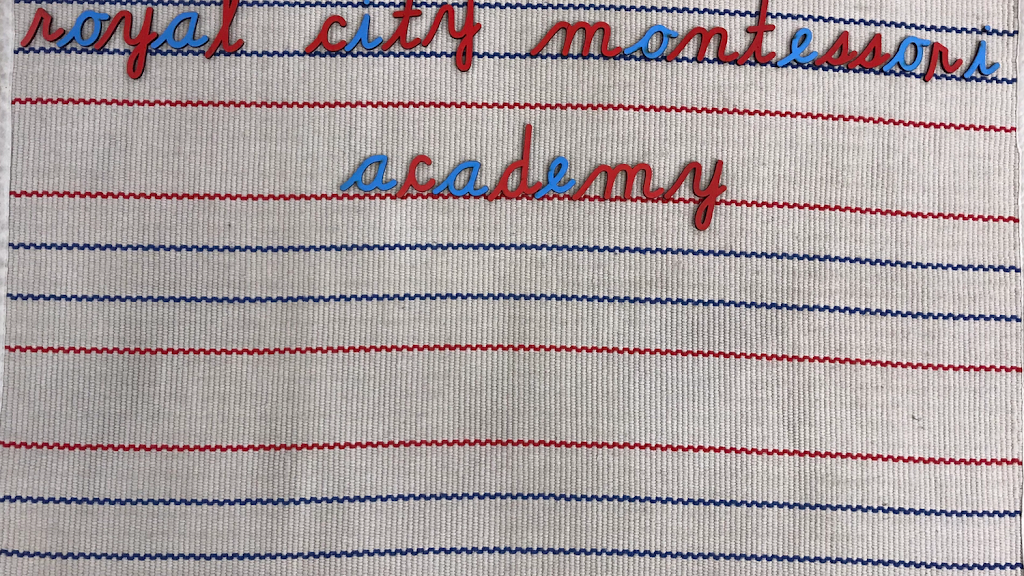 royal city montessori
academy